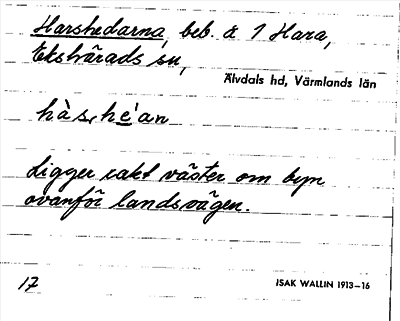 Harshedarna, beb. å 1 Hara,
Ekshärads sn,
Älvdals hd, Värmlands län
hὰs, he´an
Ligger rakt väster om byn
ovanför landsvägen.
17
ISAK WALLIN 1913–16